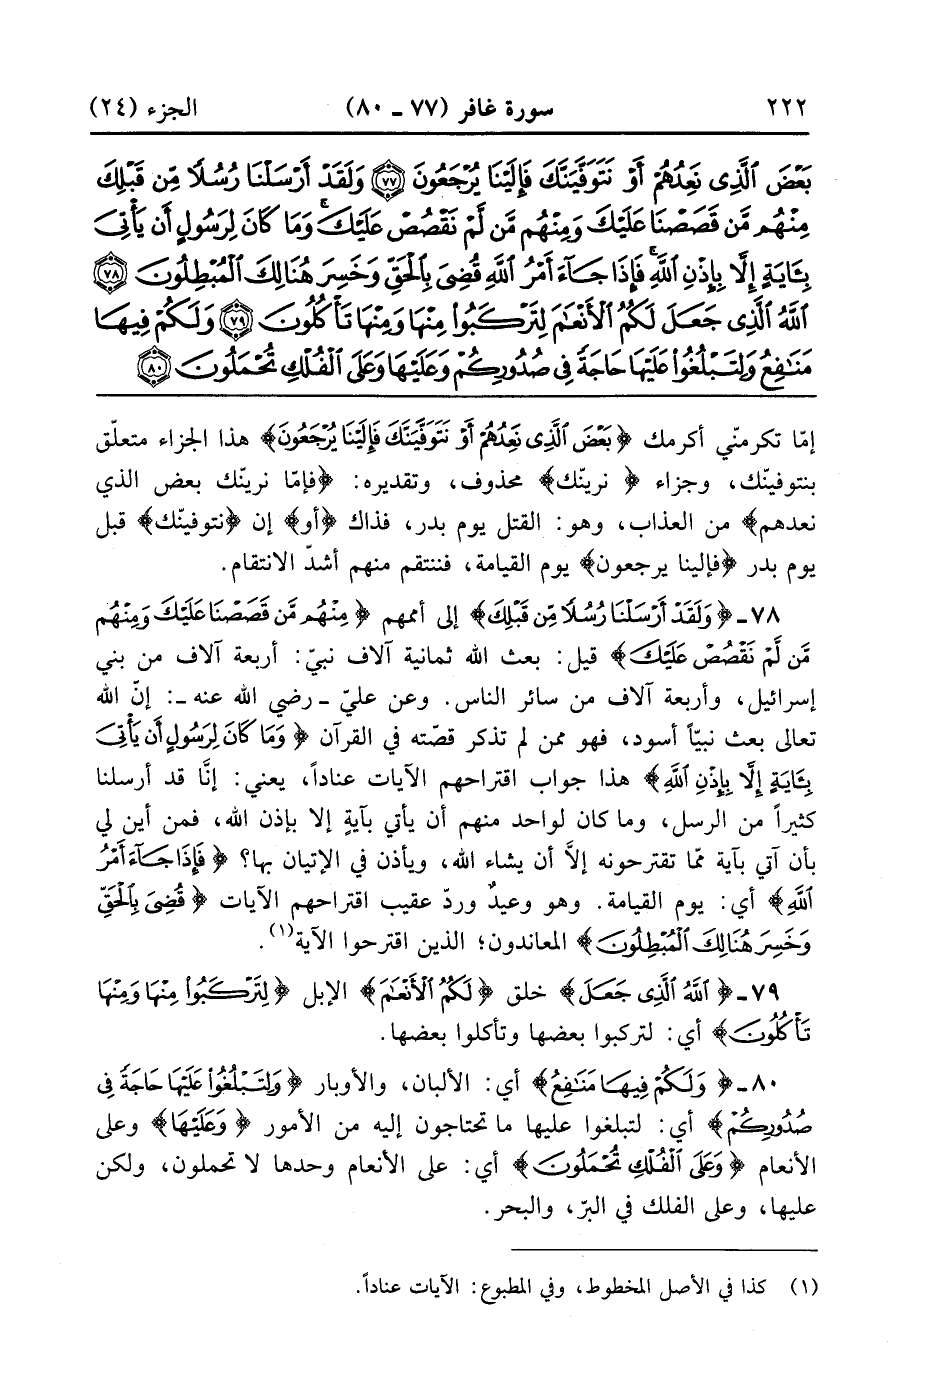 ٢٢٢ سورة غافر (٧٧ ـ ٨٠) الجزء (٢٤)
بَعْضَ ٱلَّذِى نَعِدُهُمْ أَوْ نَتَوَفَّيَنَّكَ فَإِلَيْنَا يُرْجَعُونَ ٧٧ وَلَقَدْ أَرْسَلْنَا رُسُلًا مِّن قَبْلِكَ
مِنْهُم مَّن قَصَصْنَا عَلَيْكَ وَمِنْهُم مَّن لَّمْ نَقْصُصْ عَلَيْكَ ۗ وَمَا كَانَ لِرَسُولٍ أَن يَأْتِىَ
بِـَٔايَةٍ إِلَّا بِإِذْنِ ٱللَّهِ ۚ فَإِذَا جَآءَ أَمْرُ ٱللَّهِ قُضِىَ بِٱلْحَقِّ وَخَسِرَ هُنَالِكَ ٱلْمُبْطِلُونَ ٧٨
ٱللَّهُ ٱلَّذِى جَعَلَ لَكُمُ ٱلْأَنْعَٰمَ لِتَرْكَبُوا۟ مِنْهَا وَمِنْهَا تَأْكُلُونَ ٧٩ وَلَكُمْ فِيهَا
مَنَٰفِعُ وَلِتَبْلُغُوا۟ عَلَيْهَا حَاجَةً فِى صُدُورِكُمْ وَعَلَيْهَا وَعَلَى ٱلْفُلْكِ تُحْمَلُونَ ٨٠
إمّا تكرمنّي أكرمك ﴿بَعْضَ ٱلَّذِى نَعِدُهُمْ أَوْ نَتَوَفَّيَنَّكَ فَإِلَيْنَا يُرْجَعُونَ﴾ هذا الجزاء متعلّق
بنتوفينّك، وجزاء ﴿نرينّك﴾ محذوف، وتقديره: ﴿فإمّا نرينّك بعض الذي
نعدهم﴾ من العذاب، وهو: القتل يوم بدر، فذاك ﴿أو﴾ إن ﴿نتوفينّك﴾ قبل
يوم بدر ﴿فإلينا يرجعون﴾ يوم القيامة، فننتقم منهم أشدّ الانتقام.
٧٨ـ ﴿وَلَقَدْ أَرْسَلْنَا رُسُلًا مِّن قَبْلِكَ﴾ إلى أممهم ﴿مِنْهُم مَّن قَصَصْنَا عَلَيْكَ وَمِنْهُم
مَّن لَّمْ نَقْصُصْ عَلَيْكَ﴾ قيل: بعث الله ثمانية آلاف نبيّ: أربعة آلاف من بني
إسرائيل، وأربعة آلاف من سائر الناس. وعن عليّ ـ رضي الله عنه ـ: إنّ الله
تعالى بعث نبيّاً أسود، فهو ممن لم تذكر قصّته في القرآن ﴿وَمَا كَانَ لِرَسُولٍ أَن يَأْتِىَ
بِـَٔايَةٍ إِلَّا بِإِذْنِ ٱللَّهِ﴾ هذا جواب اقتراحهم الآيات عناداً، يعني: إنَّا قد أرسلنا
كثيراً من الرسل، وما كان لواحد منهم أن يأتي بآيةٍ إلا بإذن الله، فمن أين لي
بأن آتي بآية ممّا تقترحونه إلاَّ أن يشاء الله، ويأذن في الإتيان بها؟ ﴿فَإِذَا جَآءَ أَمْرُ
ٱللَّهِ﴾ أي: يوم القيامة. وهو وعيدٌ وردّ عقيب اقتراحهم الآيات ﴿قُضِىَ بِٱلْحَقِّ
وَخَسِرَ هُنَالِكَ ٱلْمُبْطِلُونَ﴾ المعاندون؛ الذين اقترحوا الآية(١).
٧٩ـ ﴿ٱللَّهُ ٱلَّذِى جَعَلَ﴾ خلق ﴿لَكُمُ ٱلْأَنْعَٰمَ﴾ الإبل ﴿لِتَرْكَبُوا۟ مِنْهَا وَمِنْهَا
تَأْكُلُونَ﴾ أي: لتركبوا بعضها وتأكلوا بعضها.
٨٠ـ ﴿وَلَكُمْ فِيهَا مَنَٰفِعُ﴾ أي: الألبان، والأوبار ﴿وَلِتَبْلُغُوا۟ عَلَيْهَا حَاجَةً فِى
صُدُورِكُمْ﴾ أي: لتبلغوا عليها ما تحتاجون إليه من الأمور ﴿وَعَلَيْهَا﴾ وعلى
الأنعام ﴿وَعَلَى ٱلْفُلْكِ تُحْمَلُونَ﴾ أي: على الأنعام وحدها لا تحملون، ولكن
عليها، وعلى الفلك في البرّ، والبحر.
(١) كذا في الأصل المخطوط، وفي المطبوع: الآيات عناداً.